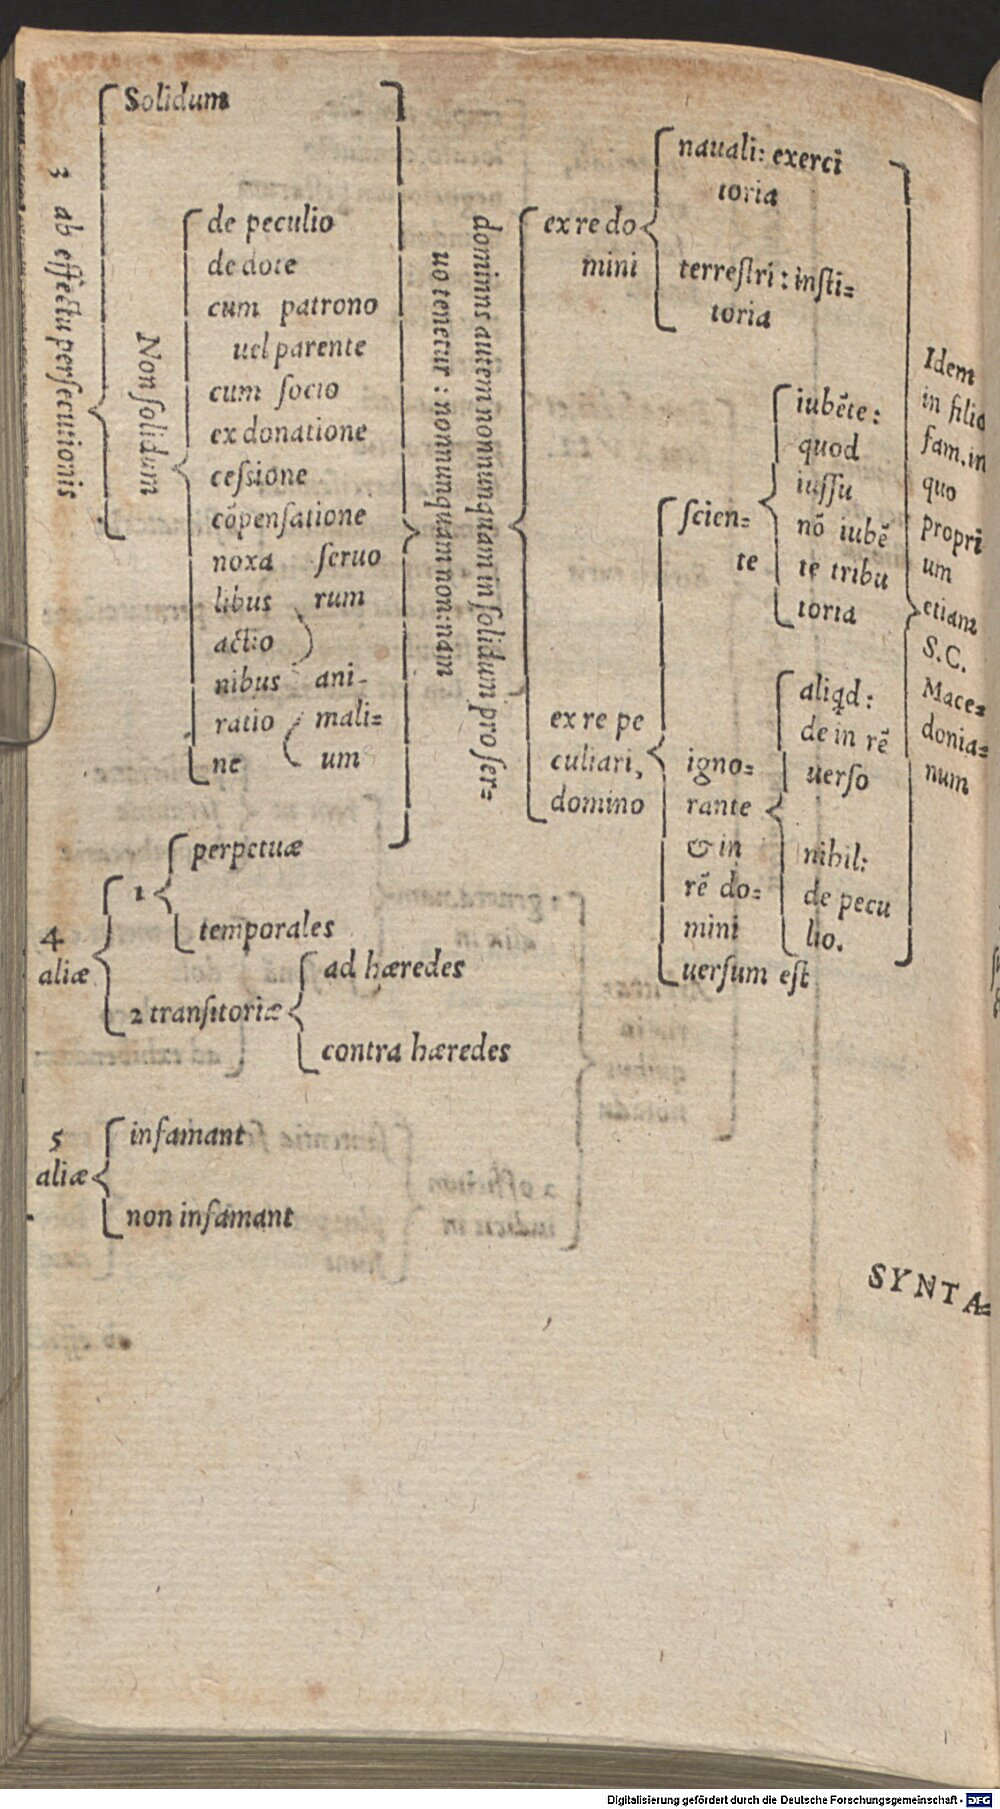 3 ab effectu persecutionis
Solidum
Non solidum
de peculio
de dote
cum patrono
uel parente
cum socio
ex donatione
cessione
cōpensatione
noxa seruo
libus rum
actio
nibus ani-
ratio mali=
ne um
dominus autem nonnunquam in solidum pro ser=
uo tenetur : nonnunquam non:nam
ex re do
mini
nauali: exerci
toria
terrestri : insti=
toria
ex re pe
culiari,
domino
scien=
te
iubēte :
quod
iussu
nō iubē
te tribu
toria
igno=
rante
& in
rē do=
mini
uersum est
aliqd :
de in rē
uerso
nihil:
de pecu
lio.
Idem
in filio
fam. in
quo
propri
um
etiam
S.C.
Mace=
donia=
num
4
aliæ
1
perpetuæ
temporales
2 transitoriæ
ad hæredes
contra hæredes
5
aliæ
infamant
non infamant
SYNTA=
Digitalisierung gefördert durch die Deutsche Forschungsgemeinschaft - DFG